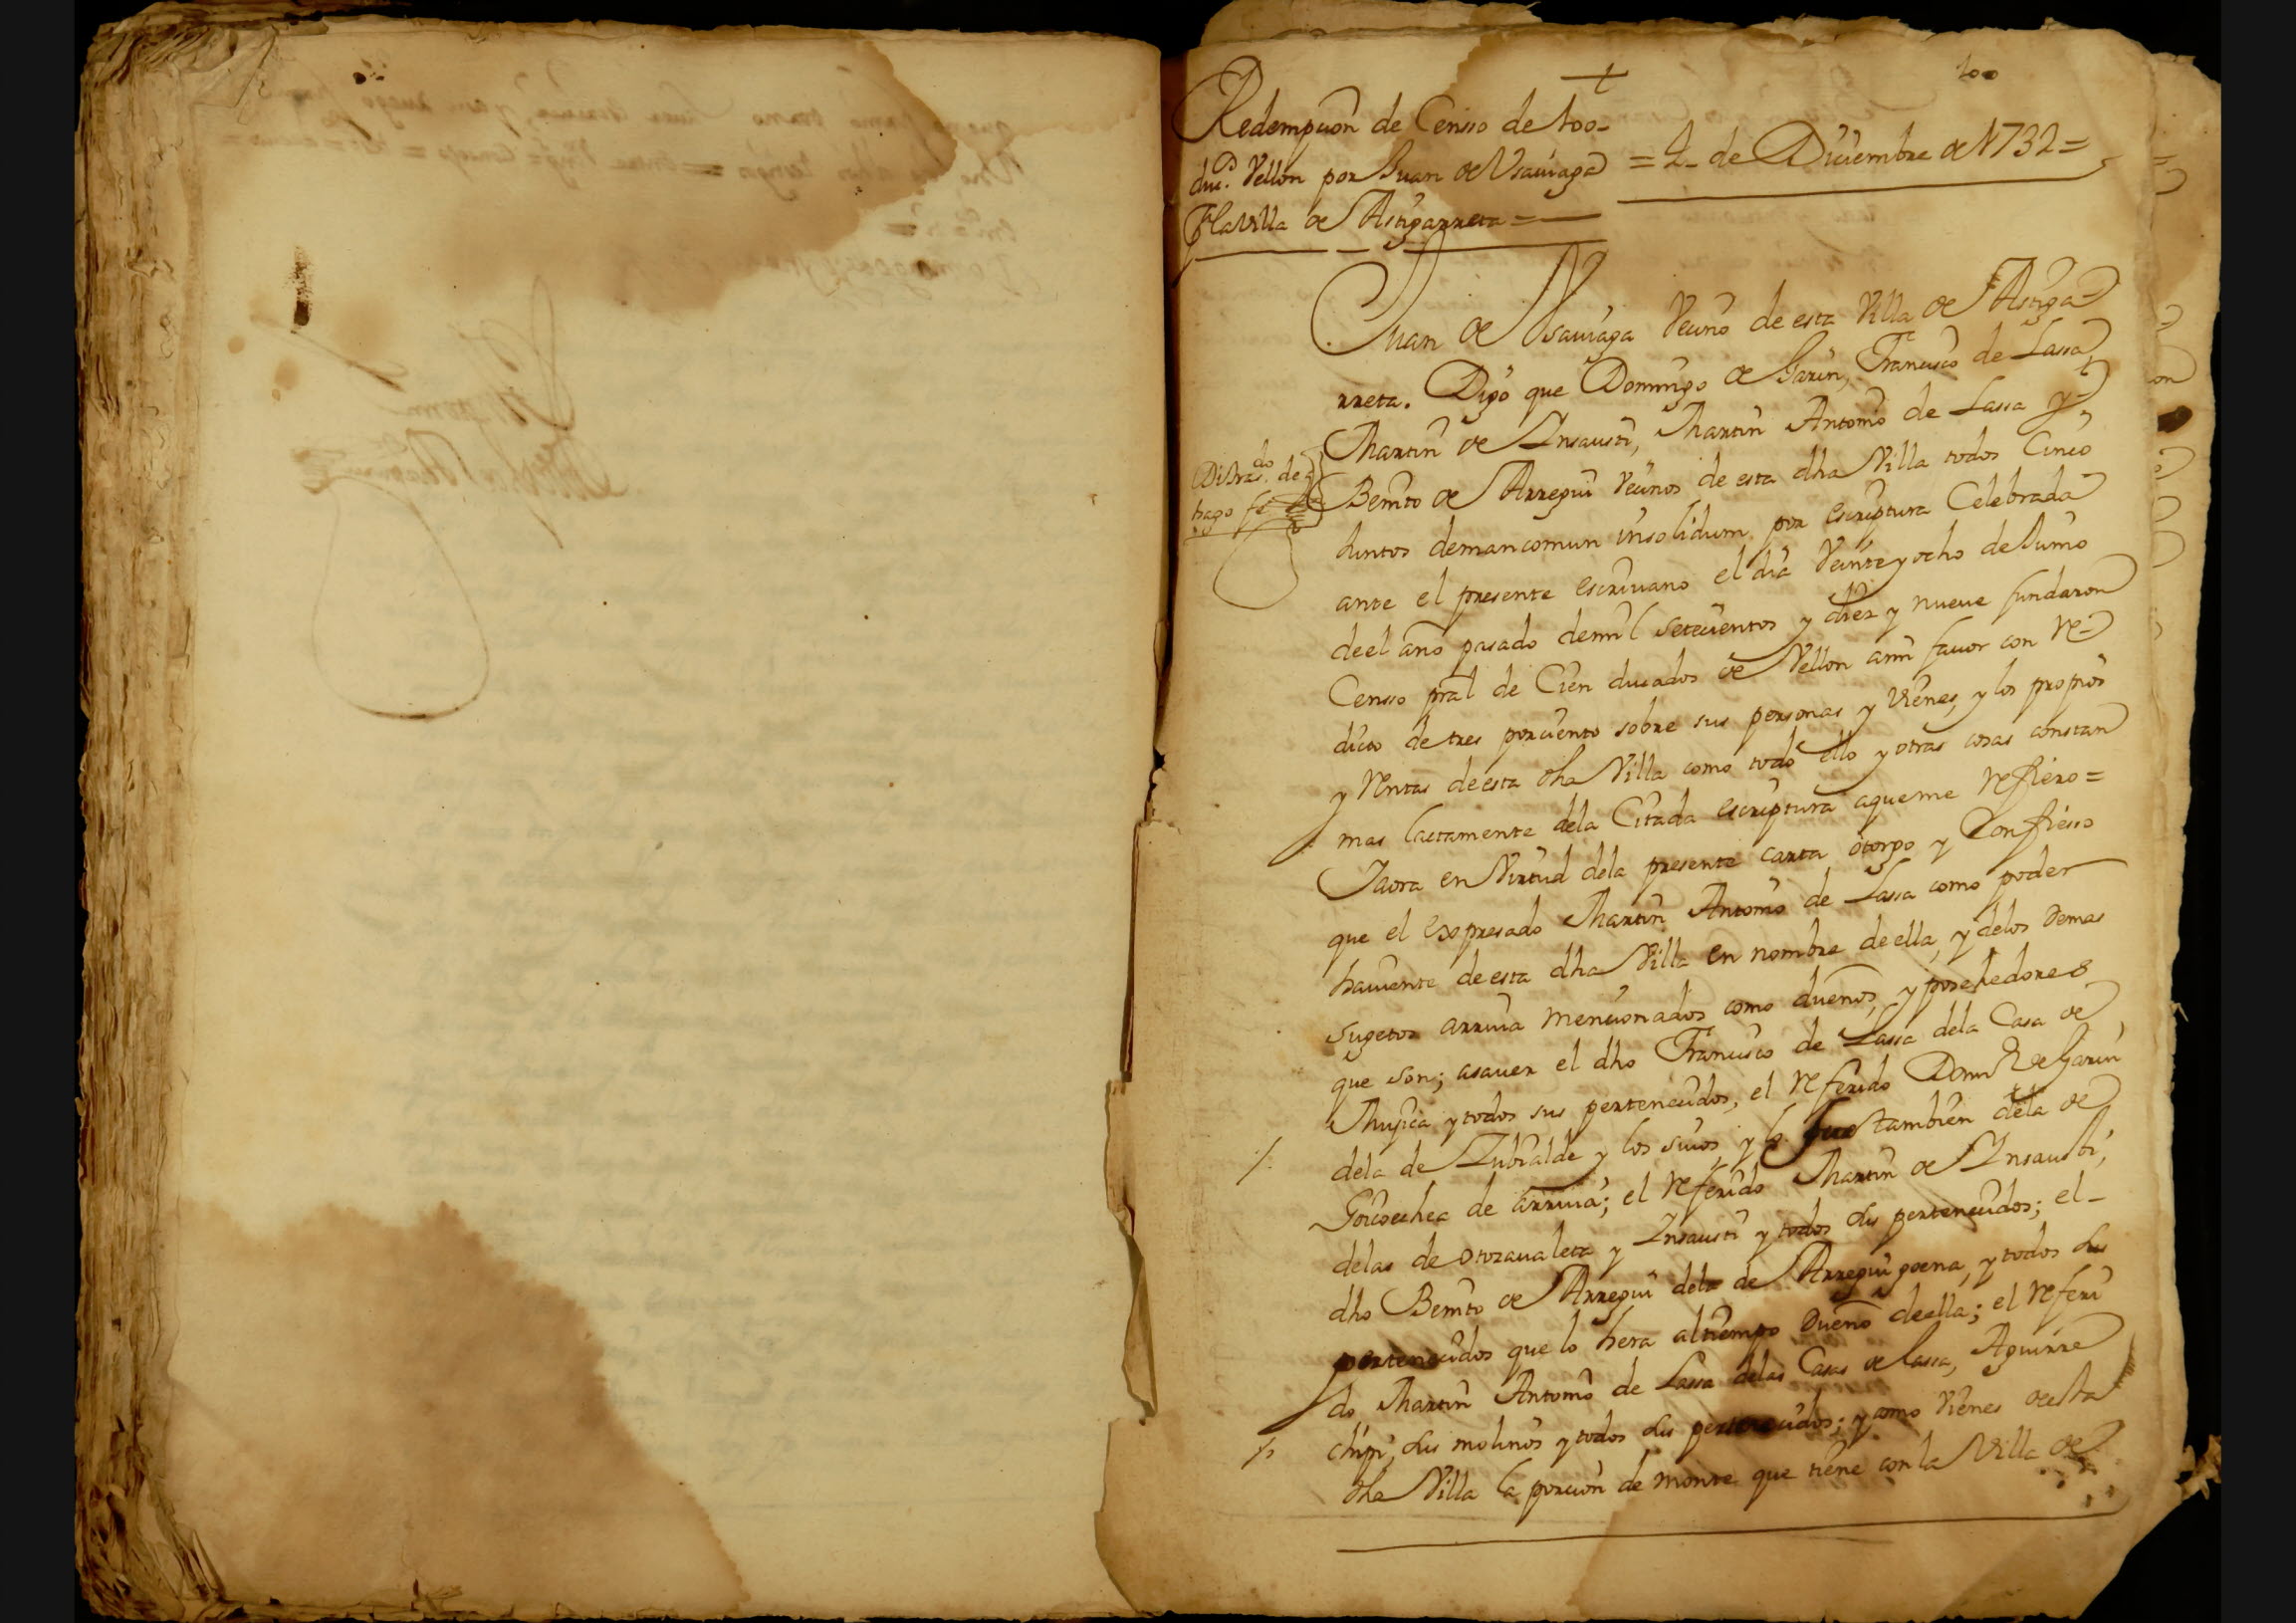 100
Redempcion de Censso de 100-
duc.s Vellon por Juan de Vsauiaga
la Villa de Astigarreta =
= 2 - de Diciembre de 1732 =
Juan de Vsauiaga Vecino de esta Villa de Astiga-
rreta. Digo que Domingo de Garin, Francisco de Lassa,
Martin de Insausti, Martin Antonio de Lassa y
Benito de Arregui Vecinos de esta dha Villa todos Cinco
Juntos demancomun insolidum por escriptura Celebrada
ante el presente escriuano el dia Veinte y ocho de Junio
de el año pasado de mil setecientos y diez y nueue fundaron
Censso pral de Cien ducados de Vellon a mi fauor con Re-
dito de tres porciento sobre sus personas y Vienes, y los propios
y Rentas de esta dha Villa como todo ello y otras cosas constan
mas lactamente dela Citada escriptura aqueme Refiero =
Iaora en Virtud dela presente carta otorgo y Confiesso
que el expresado Martin Antonio de Lassa como poder
hauiente de esta dha Villa en nombre de ella, y delos demas
sugetos arriua mencionados como dueños, y posehedores
que son; asauer el dho Francisco de Lassa dela Casa de
Mujica y todos sus pertenecidos, el Referido Dom.o de Garin
dela de Zubialde y los suios, y lo fue tambien dela de
Goicoechea de arriua; el Referido Martin de Insausti,
delas de otorzaualeta y Insausti y todos sus pertenecidos; el -
dho Benito de Arregui dela de Arregui goena, y todos sus
pertenecidos que lo hera altiempo Dueño deella; el Referi
do Martin Antonio de Lassa delas Casas de Lassa, Aguirre
chipi, sus molinos y todos sus pertenecidos; y como Vienes deesta
dha Villa la porcion de monte que tiene con la Villa de
hago fe